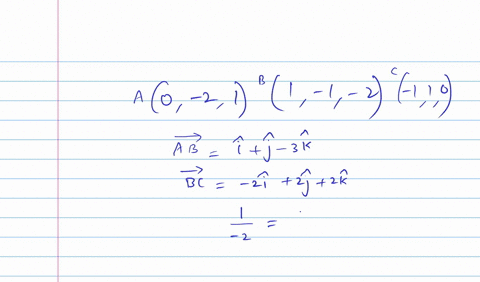 A(0, -2, 1) B(1, -1, -2) C(-1, 1, 0)
$\overrightarrow{AB} = \hat{i} + \hat{j} - 3\hat{k}$
$\overrightarrow{BC} = -2\hat{i} + 2\hat{j} + 2\hat{k}$
$\frac{1}{-2} =$